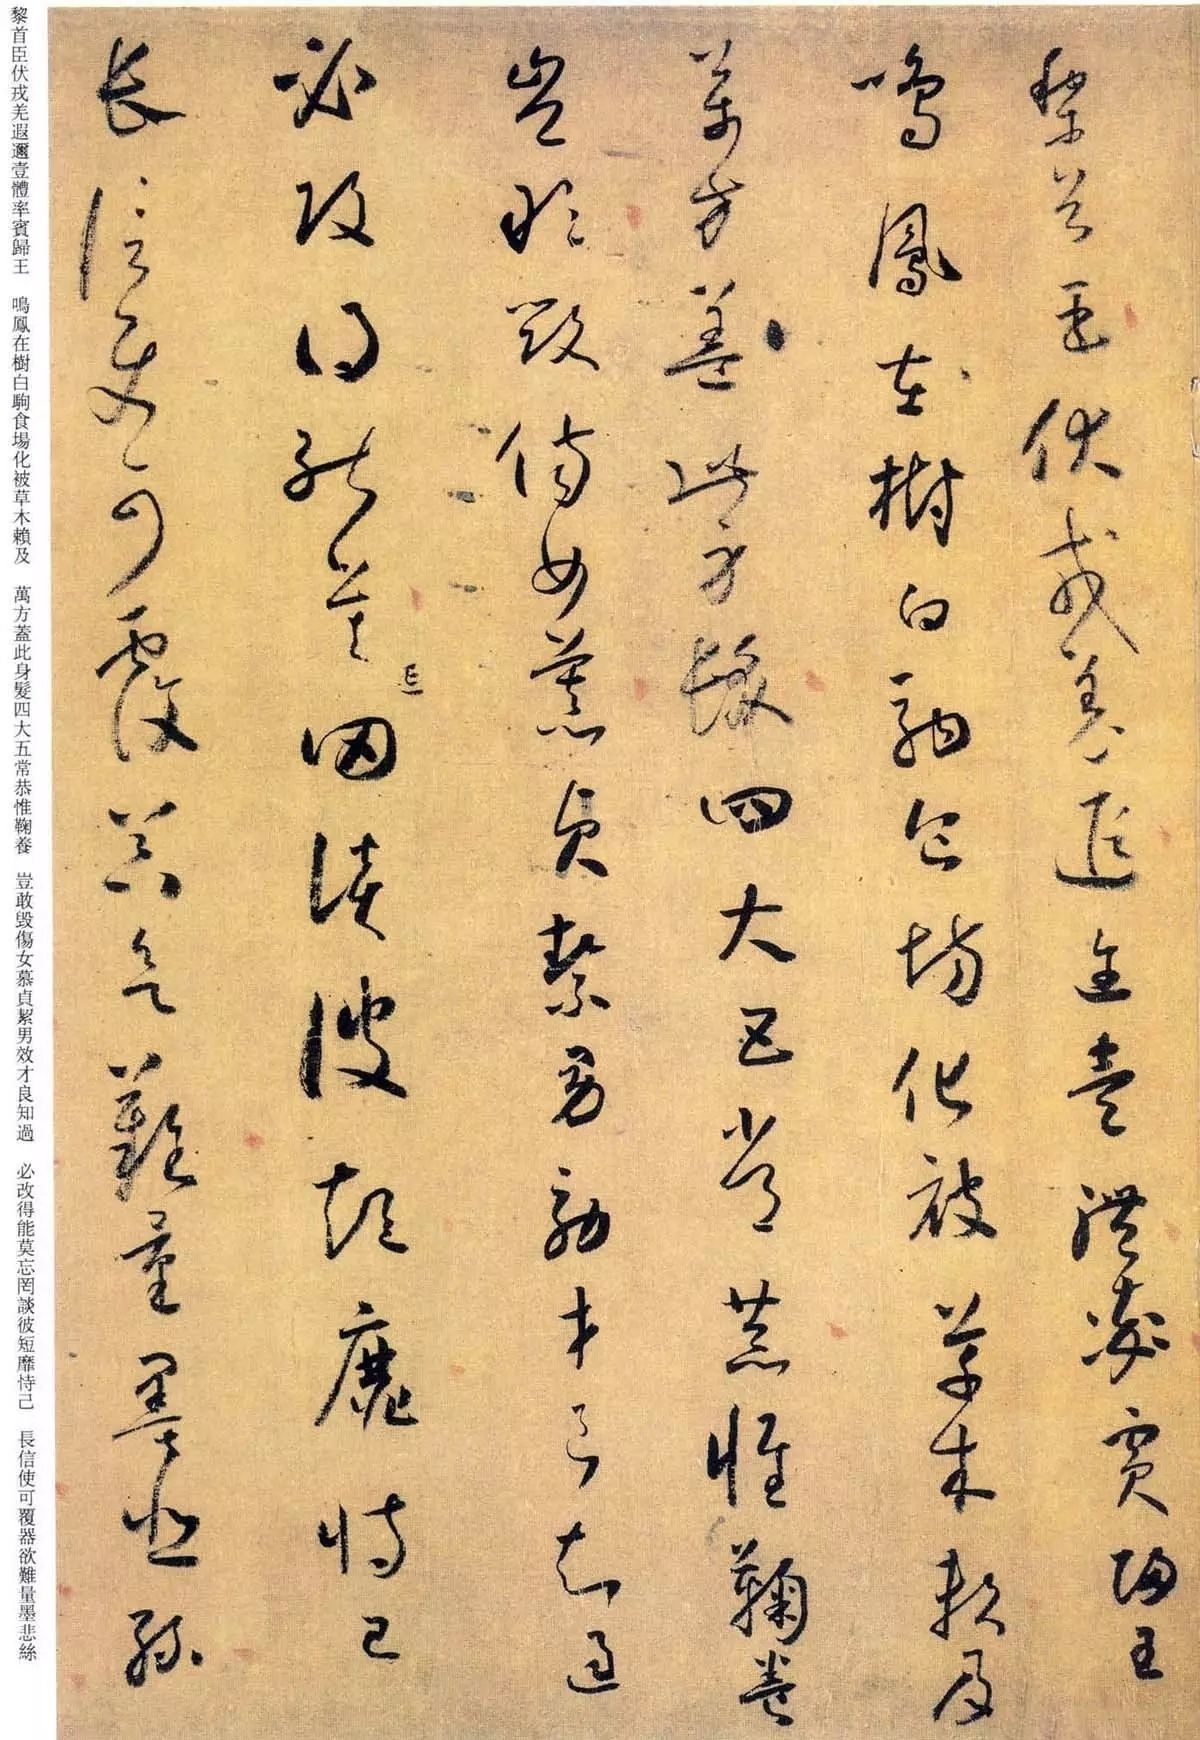 黎首臣伏戎羌遐邇壹體率賓歸王
鳴鳳在樹白駒食場化被草木賴及
萬方蓋此身髮四大五常恭惟鞠養
豈敢毀傷女慕貞絜男效才良知過
必改得能莫忘罔談彼短靡恃己
長信使可覆器欲難量墨悲絲
黎首臣伏戎羌遐邇壹體率賓歸王 鳴鳳在樹白駒食場化被草木賴及 萬方蓋此身髮四大五常恭惟鞠養 豈敢毀傷女慕貞絜男效才良知過 必改得能莫忘罔談彼短靡恃己 長信使可覆器欲難量墨悲絲